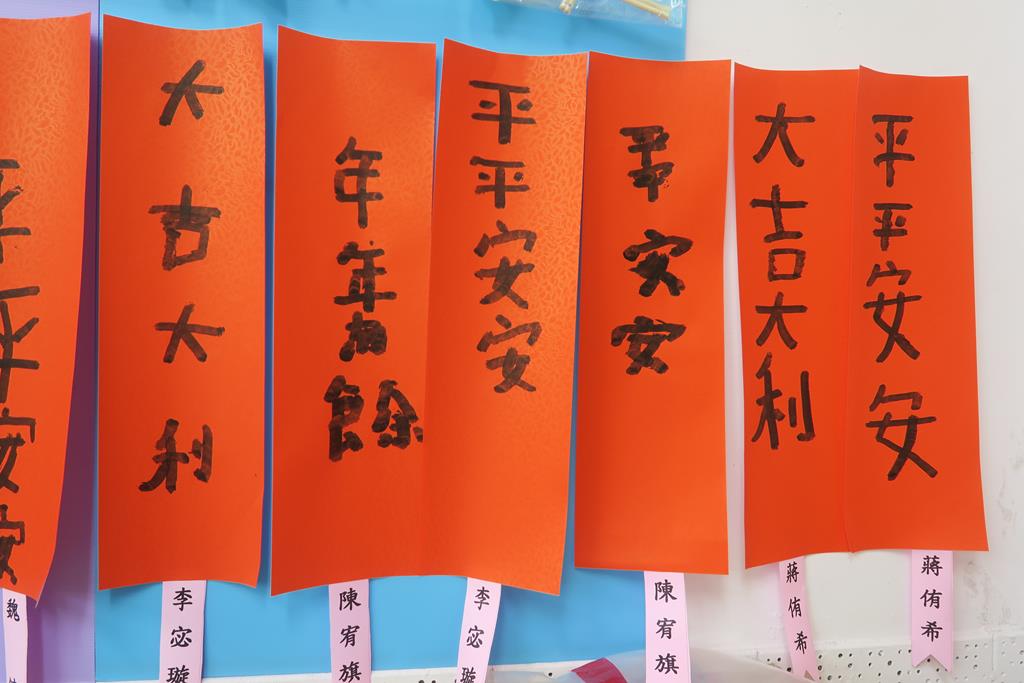 平平安安
魏
大吉大利
李宓璇
年年有餘
陳宥旗
平平安安
李宓璇
平安安
陳宥旗
大吉大利
蔣侑希
平平安安
蔣侑希